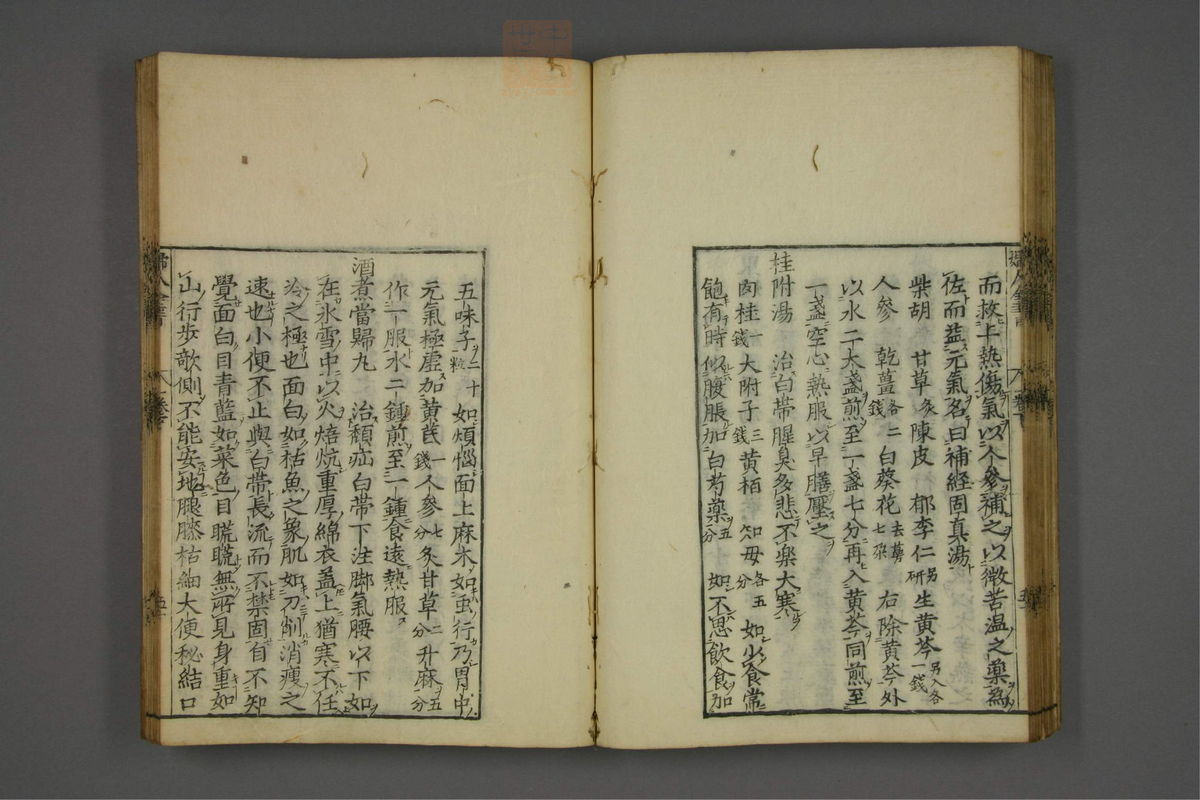 而救上熱傷氣以人參補之以微苦溫之藥爲
佐而益元氣名曰補經固真湯
柴胡 甘草炙 陳皮 郁李仁另研 生黃芩一錢另入各
人參 乾薑各二錢 白葵花去萼七朶 右除黃芩外
以水二大盞煎至一盞七分再入黃芩同煎至
一盞空心熱服以早膳壓之
桂附湯 治白帶腥臭多悲不樂大寒
肉桂一錢 大附子三錢 黃栢 知母各五分 如少食常
飽有時似腹脹加白芍藥五分 如不思飲食加
五味子二十粒 如煩惱面上麻木如虫行乃胃中
元氣極虛加黃芪一錢 人參七分 炙甘草二分 升麻五分
作一服水二鍾煎至一鍾食遠熱服
酒煮當歸丸 治㿗疝白帶下注脚氣腰以下如
在氷雪中以火焙炕重厚綿衣蓋上猶寒不任
冷之極也面白如枯魚之象肌如刀削消瘦之
速也小便不止與白帶長流而不禁固自不知
覺面白目青藍如菜色目䀮䀮無所見身重如
山行歩欹側不能安地腿膝枯細大便秘結口